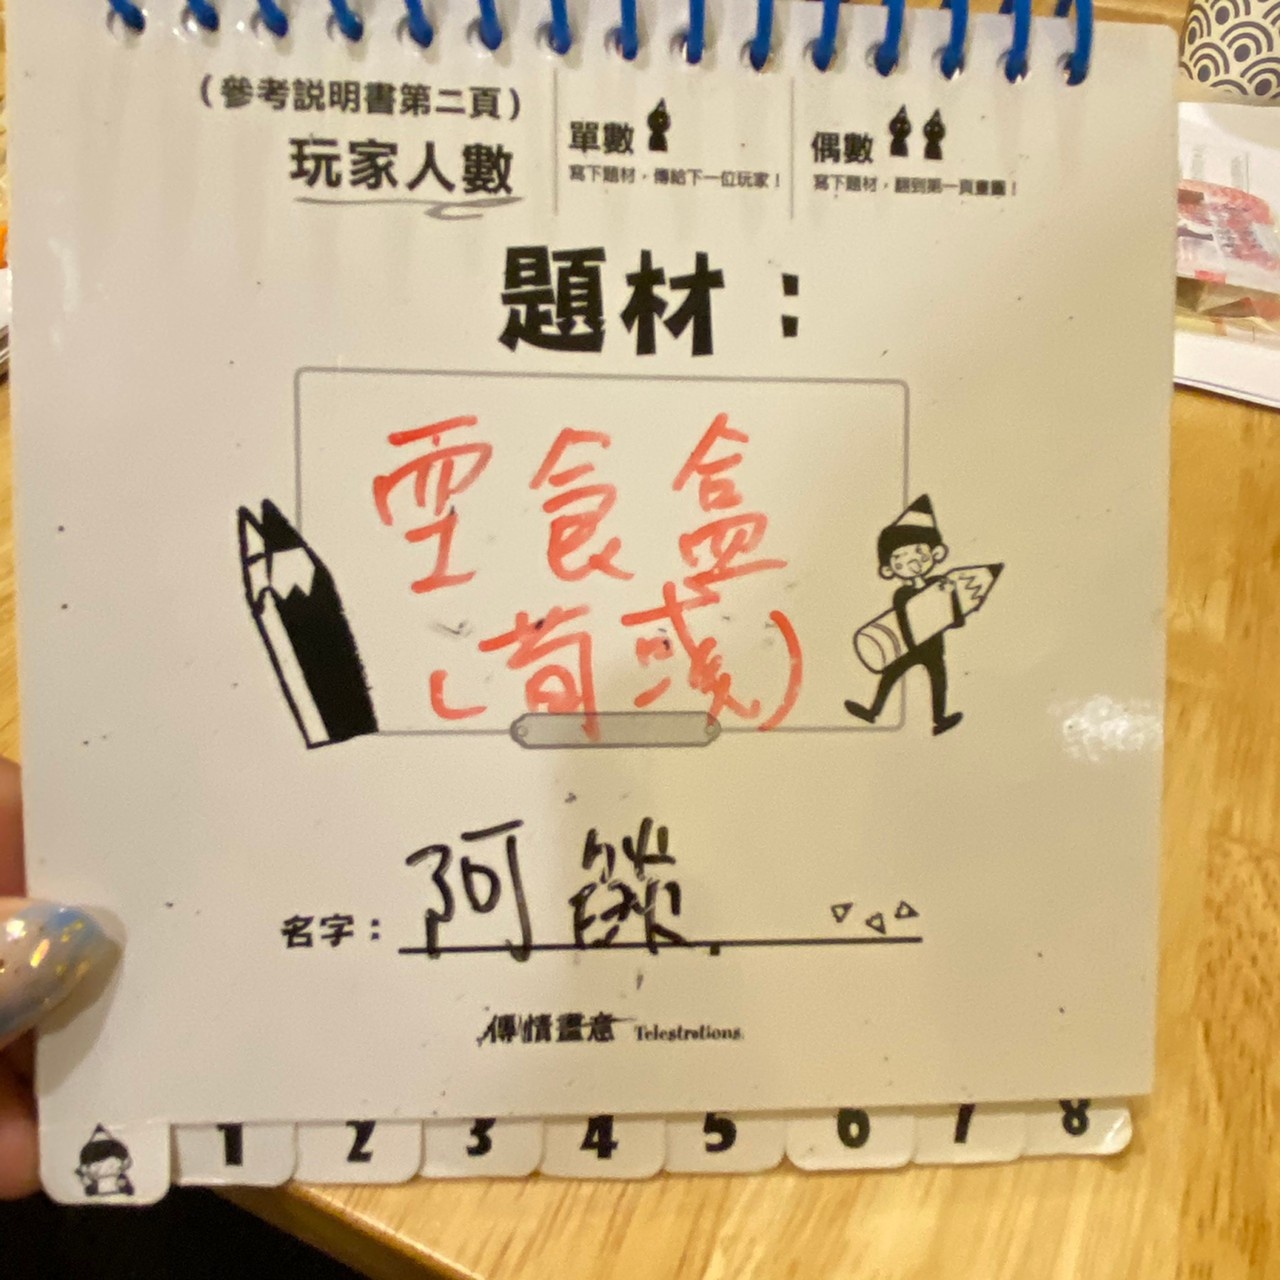 (參考説明書第二頁)
玩家人數
單數
寫下題材，傳給下一位玩家！
偶數
寫下題材，翻到第一頁畫圖！
題材：
空食盒
(荀彧)
名字：阿燄
傳情畫意 Telestrations
1 2 3 4 5 6 7 8